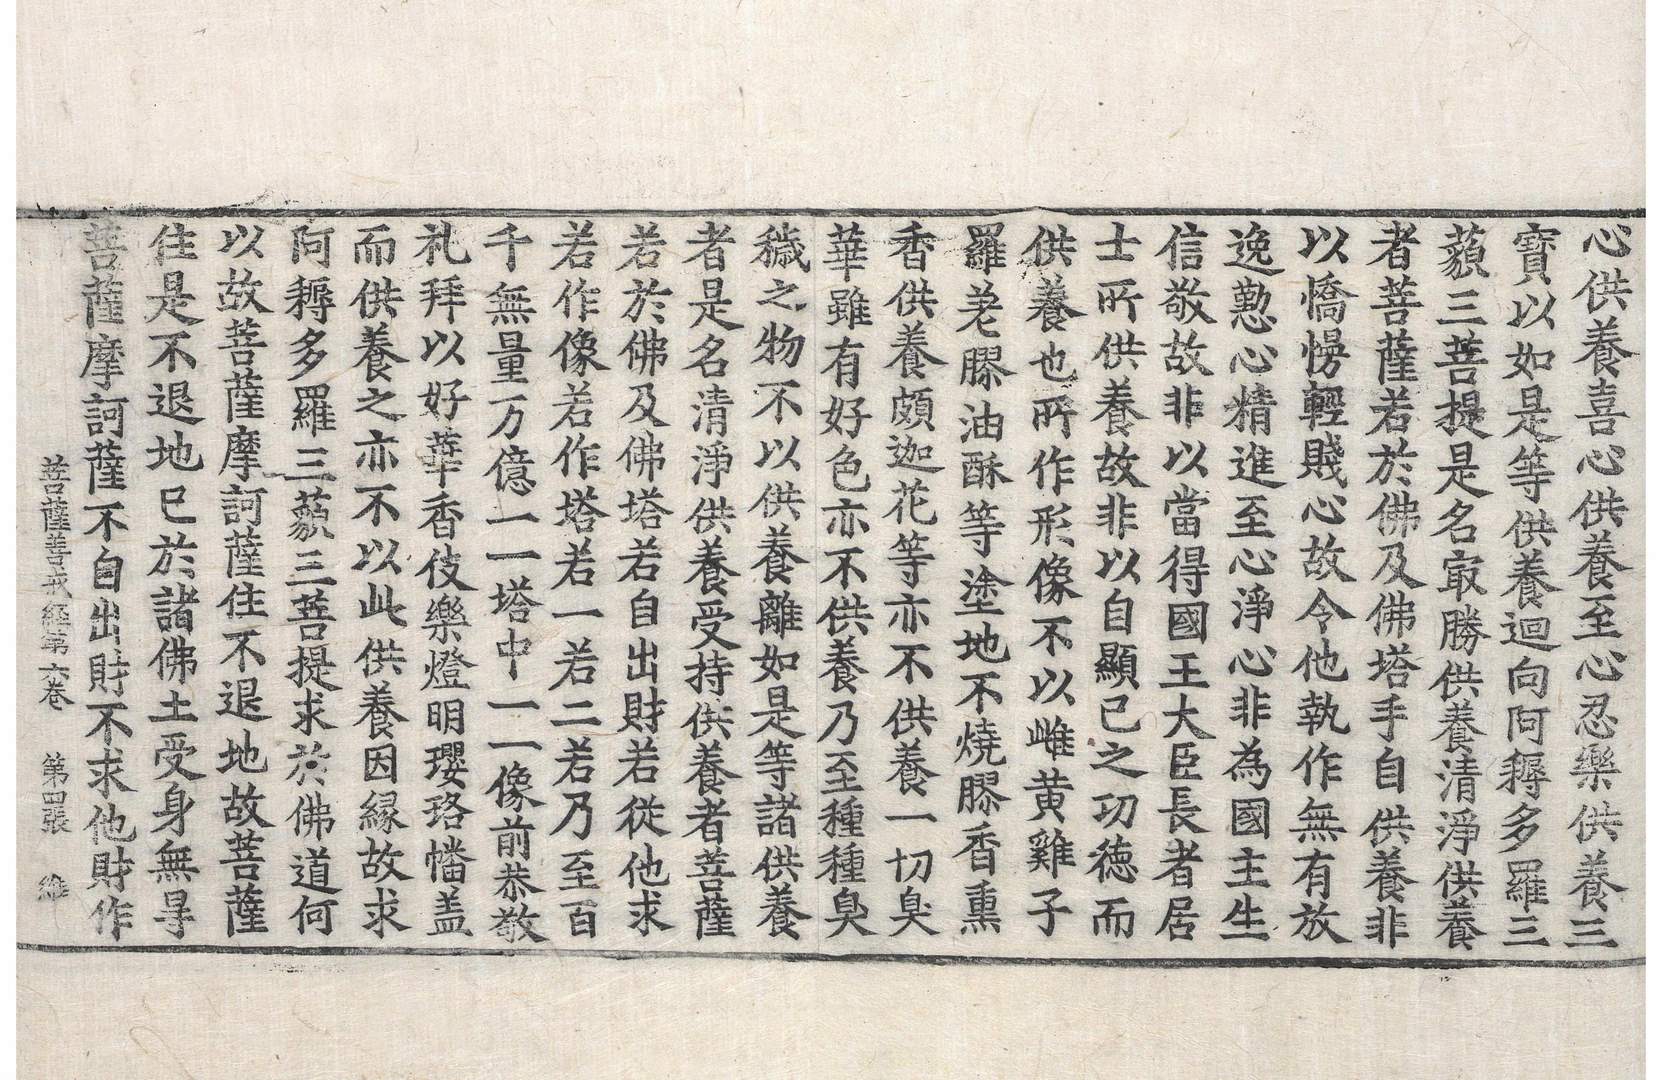 心供養喜心供養至心忍樂供養三
寶以如是等供養迴向阿耨多羅三
藐三菩提是名冣勝供養清淨供養
者菩薩若於佛及佛塔手自供養非
以憍慢輕賤心故令他執作無有放
逸懃心精進至心淨心非為國主生
信敬故非以當得國王大臣長者居
士所供養故非以自顯己之功德而
供養也所作形像不以雌黃雞子
羅差膠油酥等塗地不燒膠香熏
香供養頗迦花等亦不供養一切臭
華雖有好色亦不供養乃至種種臭
穢之物不以供養離如是等諸供養
者是名清淨供養受持供養者菩薩
若於佛及佛塔若自出財若從他求
若作像若作塔若一若二若乃至百
千無量万億一一塔中一一像前恭敬
礼拜以好華香伎樂燈明瓔珞幡盖
而供養之亦不以此供養因緣故求
阿耨多羅三藐三菩提求於佛道何
以故菩薩摩訶薩住不退地故菩薩
住是不退地已於諸佛土受身無㝵
菩薩摩訶薩不自出財不求他財作
菩薩善戒經第六卷 第四張 維